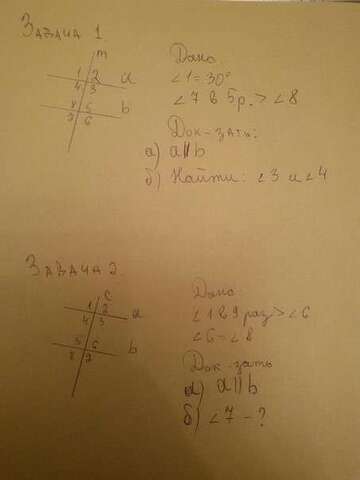 Задача 1
m
1 2 a
4 3
8 5 b
7 6
Дано
∠1=30°
∠7 в 5р. > ∠8
Док-зать:
а) a∥b
б) Найти: ∠3 и ∠4
Задача 2
c
1 2 a
4 3
5 6 b
8 7
Дано
∠1 в 9 раз > ∠6
∠6=∠8
Док-зать
а) a∥b
б) ∠7 - ?